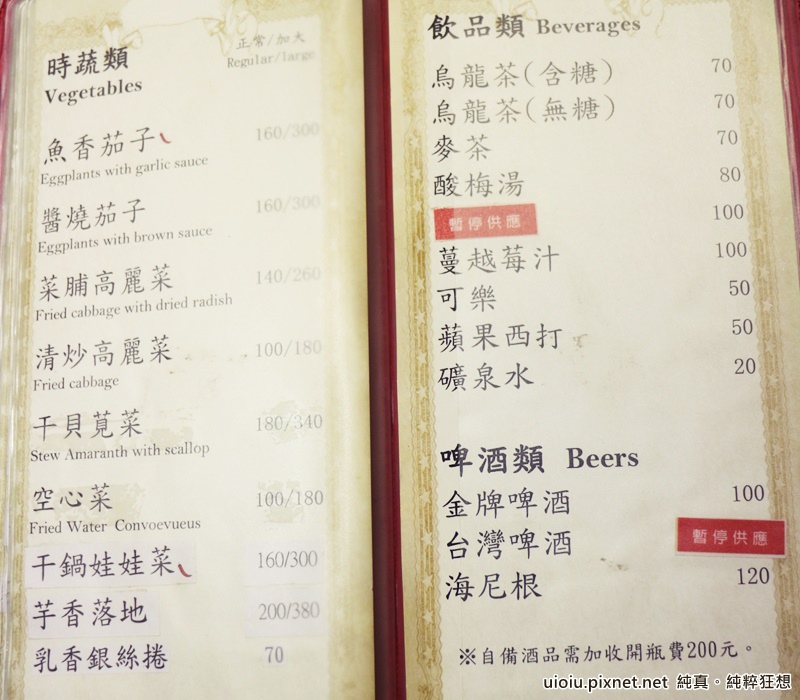 時蔬類
Vegetables
正常/加大
Regular/large
魚香茄子 160/300
Eggplants with garlic sauce
醬燒茄子 160/300
Eggplants with brown sauce
菜脯高麗菜 140/260
Fried cabbage with dried radish
清炒高麗菜 100/180
Fried cabbage
干貝莧菜 180/340
Stew Amaranth with scallop
空心菜 100/180
Fried Water Convoevueus
干鍋娃娃菜 160/300
芋香落地 200/380
乳香銀絲捲 70
飲品類 Beverages
烏龍茶(含糖) 70
烏龍茶(無糖) 70
麥茶 70
酸梅湯 80
暫停供應 100
蔓越莓汁 100
可樂 50
蘋果西打 50
礦泉水 20
啤酒類 Beers
金牌啤酒 100
台灣啤酒 暫停供應
海尼根 120
※自備酒品需加收開瓶費200元。
uioiu.pixnet.net 純真。純粹狂想